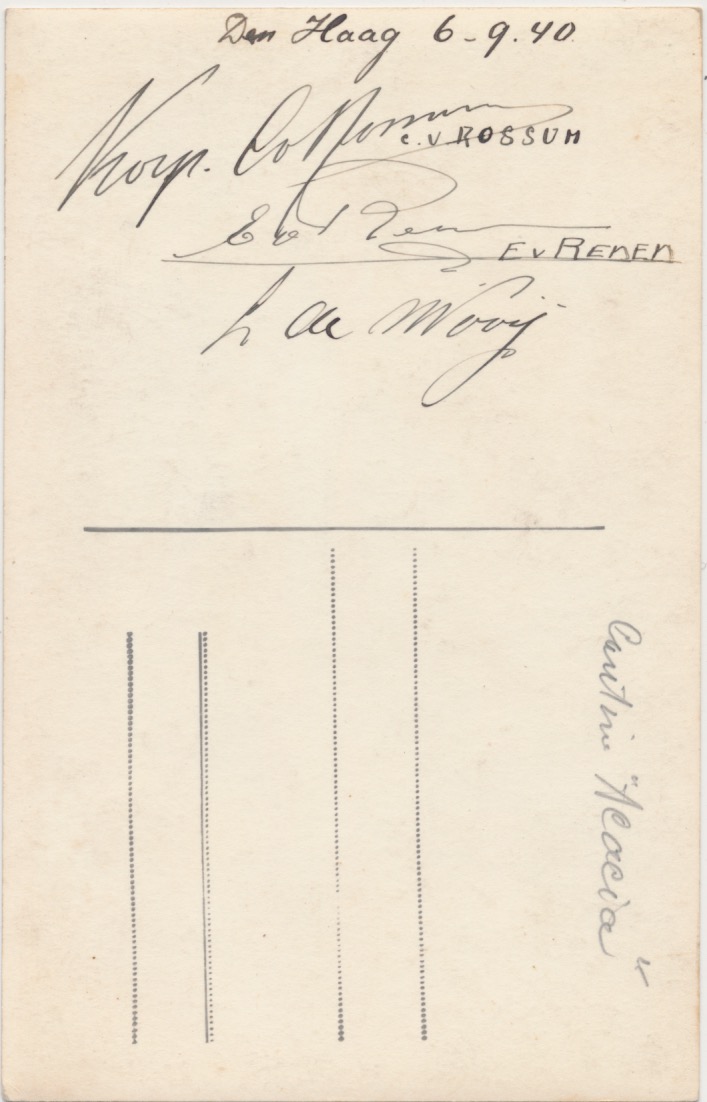 Den Haag 6-9.40
Korp. C v Rossum
C. V ROSSUM
E v Renen
E v RENEN
L de Wooij
Cantine "Acacia"